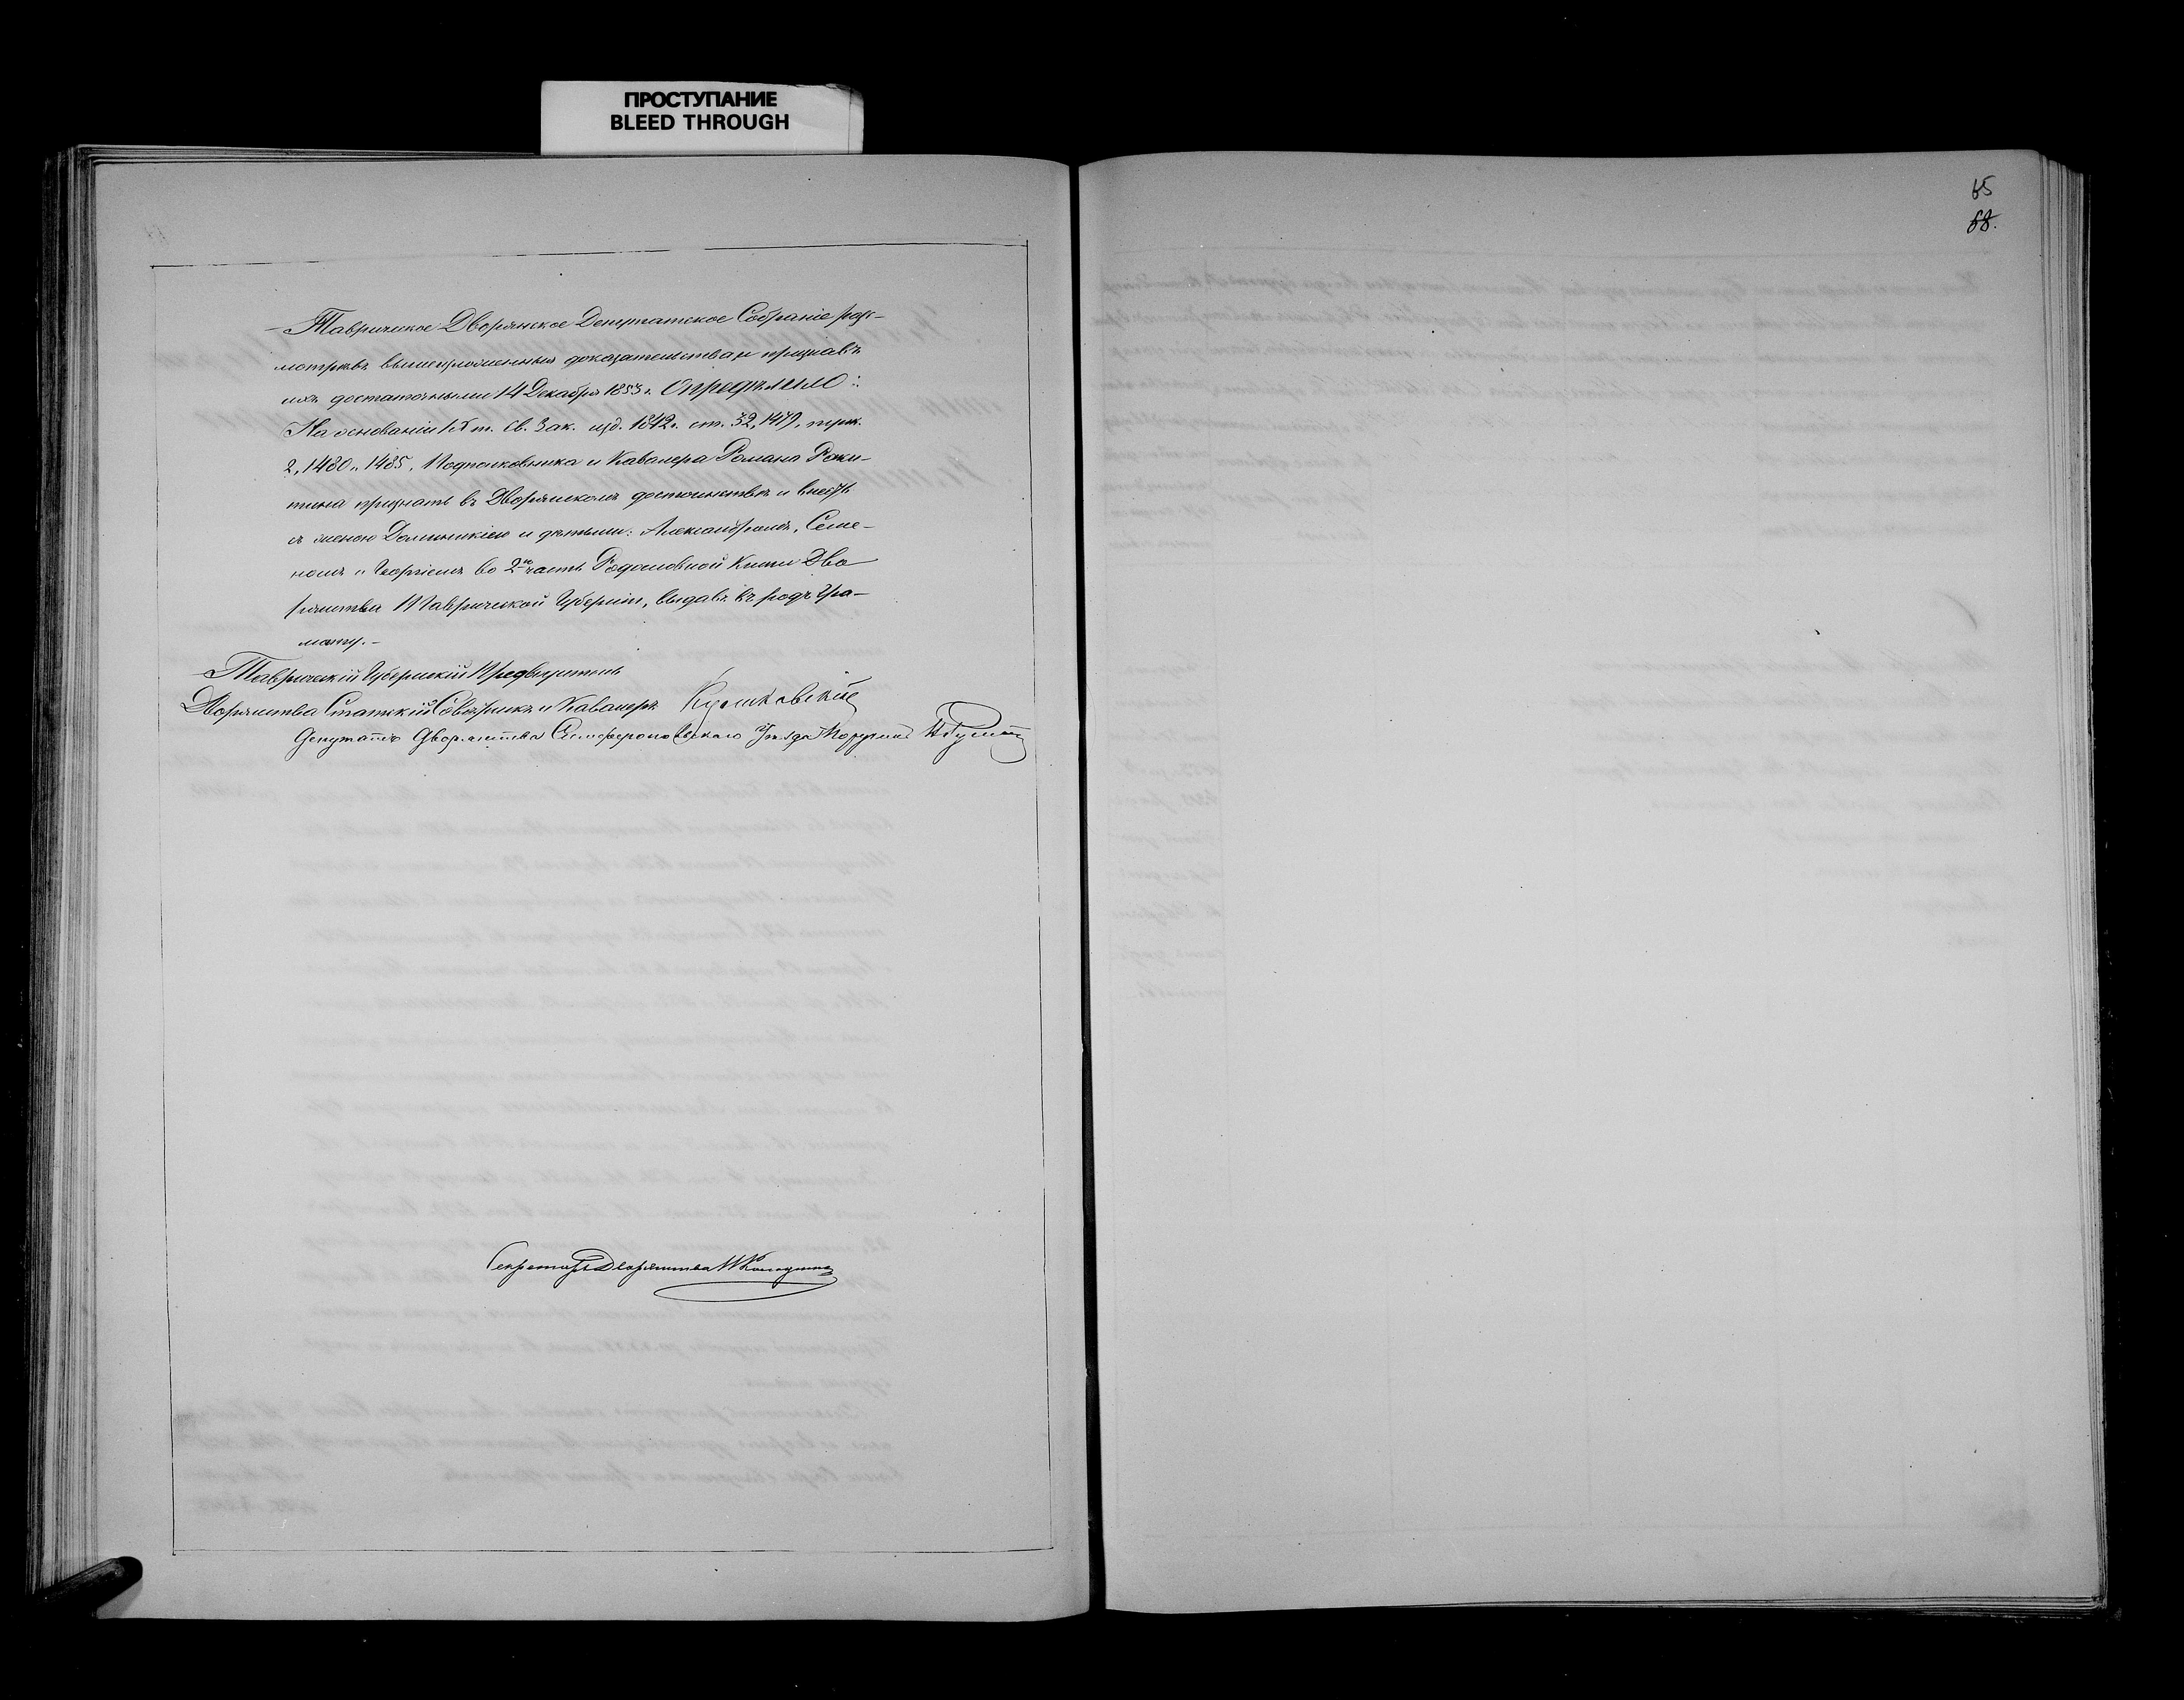 ПРОСТУПАНИЕ
BLEED THROUGH
65
68.
Таврическое Дворянское Депутатское Собраніе раз-
мотрѣвъ вышеизложенныя доказательства и признавъ
ихъ достаточными 14 Декабря 1853 г. Опредѣлило:
На основаніи IX т. Св. Зак. изд. 1842 г. ст. 32, 1479, прим.
2, 1480 и 1485, Подполковника и Кавалера Романа Раки-
тина признать въ Дворянскомъ достоинствѣ и внесть
съ женою Домникіею и дѣтьми: Александромъ, Семе-
номъ и Георгіемъ во 2ю часть Родословной Книги Дво
рянства Таврической Губерніи, выдавъ къ родъ Гра-
моту.-
Таврическій Губернскій Предводитель
Дворянства Статскій Совѣтникъ и Кавалеръ
Депутатъ Дворянства Симферопольскаго Уѣзда Поручикъ
Секретарь Дворянства